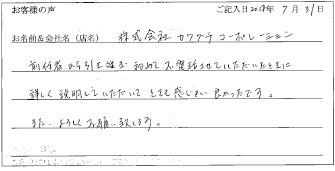 お客様の声
ご記入日2019年7月31日
お名前&会社名(店名) 株式会社カワグチコーポレーション
前任者から引き継ぎ初めてお電話させていただいたときに
詳しく説明していただいてとても感じが良かったです。
また、よろしくお願い致します。